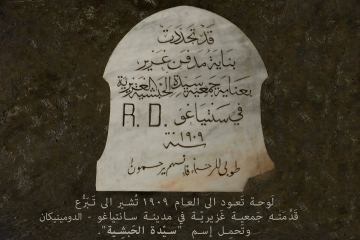 قد تجددت
بناية مدفن غزير
بعناية جمعية سيدة الحبشية الغزيرية
في سنتياغو R. D.
سنة ١٩٠٩
طوبى للرحماء فانهم يرحمون
لوحة تعود الى العام ١٩٠٩ تُشير الى تبرُّع
قدّمته جمعية غزيريّة في مدينة سانتياغو - الدومينيكان
وتحمل إسم "سيّدة الحبشِيّة".